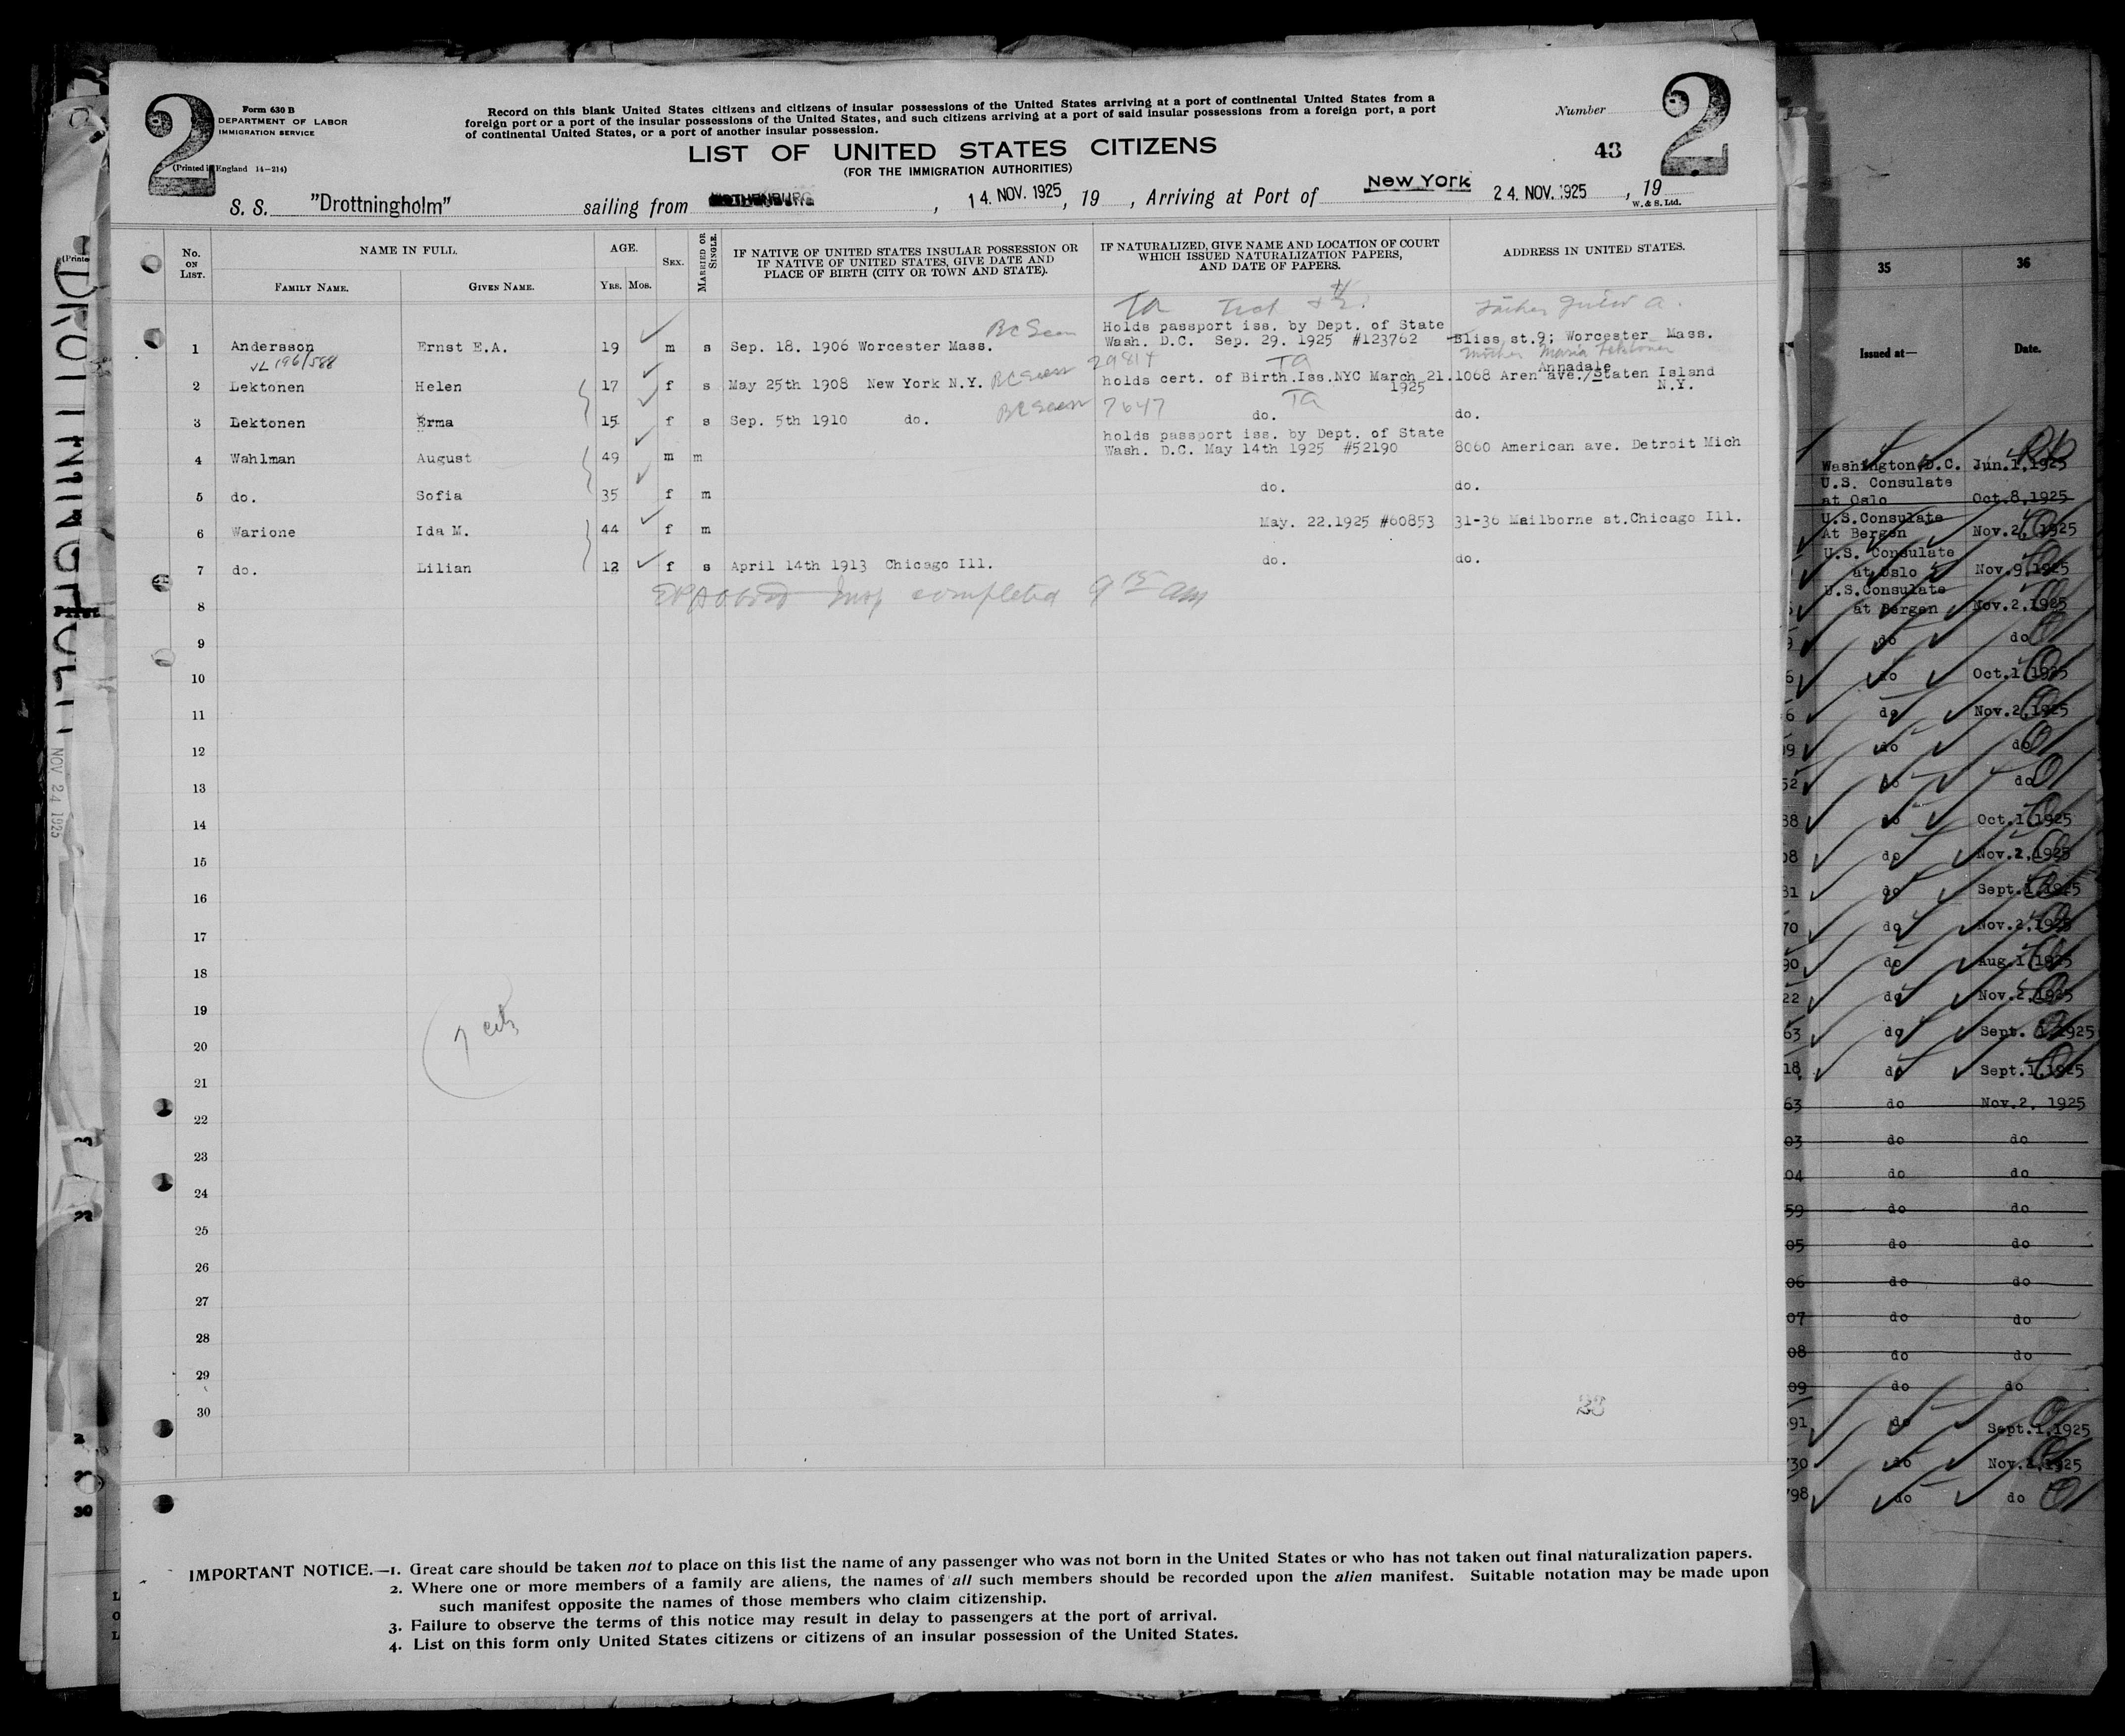 2
Form 630 B
DEPARTMENT OF LABOR
IMMIGRATION SERVICE
(Printed in England 14—214)
Record on this blank United States citizens and citizens of insular possessions of the United States arriving at a port of continental United States from a
foreign port or a port of the insular possessions of the United States, and such citizens arriving at a port of said insular possessions from a foreign port, a port
of continental United States, or a port of another insular possession.
Number
2
LIST OF UNITED STATES CITIZENS
(FOR THE IMMIGRATION AUTHORITIES)
43
S. S. "Drottningholm" sailing from GOTHENBURG, 14. NOV. 1925, 19 , Arriving at Port of New York 24. NOV. 1925, 19
W. & S. Ltd.
No. ON LIST.
NAME IN FULL.
FAMILY NAME.
GIVEN NAME.
AGE.
YRS. MOS.
SEX.
MARRIED OR SINGLE.
IF NATIVE OF UNITED STATES INSULAR POSSESSION OR
IF NATIVE OF UNITED STATES, GIVE DATE AND
PLACE OF BIRTH (CITY OR TOWN AND STATE).
IF NATURALIZED, GIVE NAME AND LOCATION OF COURT
WHICH ISSUED NATURALIZATION PAPERS,
AND DATE OF PAPERS.
ADDRESS IN UNITED STATES.
BC Seen
Holds passport iss. by Dept. of State
1 Andersson Ernst E.A. 19 m s Sep. 18. 1906 Worcester Mass. Wash. D.C. Sep. 29. 1925 #123762 Bliss st.9; Worcester Mass.
VL 196/588
29814 TA
mother Maria Lektonen
Annadale
2 Lektonen Helen 17 f s May 25th 1908 New York N.Y. BC Seen holds cert. of Birth.Iss.NYC March 21. 1925 1068 Aren ave./Staten Island
N.Y.
3 Lektonen Erma 15 f s Sep. 5th 1910 do. BC Seen 7647 TA do. do.
holds passport iss. by Dept. of State
4 Wahlman August 49 m m Wash. D.C. May 14th 1925 #52190 8060 American ave. Detroit Mich
5 do. Sofia 35 f m do. do.
6 Warione Ida M. 44 f m May. 22.1925 #60853 31-36 Mailborne st.Chicago Ill.
7 do. Lilian 12 f s April 14th 1913 Chicago Ill. do. do.
completed 9 15 am
8
9
10
11
12
13
14
15
16
17
18
19
7 cits
20
21
22
23
24
25
26
27
28
29
30
IMPORTANT NOTICE.—1. Great care should be taken not to place on this list the name of any passenger who was not born in the United States or who has not taken out final naturalization papers.
2. Where one or more members of a family are aliens, the names of all such members should be recorded upon the alien manifest. Suitable notation may be made upon
such manifest opposite the names of those members who claim citizenship.
3. Failure to observe the terms of this notice may result in delay to passengers at the port of arrival.
4. List on this form only United States citizens or citizens of an insular possession of the United States.
NOV 24 1925
30
35 36
Issued at— Date.
Washington,D.C. Jun.1,1925
U.S. Consulate
at Oslo Oct.8,1925
U.S.Consulate
At Bergen Nov.2,1925
U.S. Consulate
at Oslo Nov.9,1925
U.S.Consulate
at Bergen Nov.2,1925
do do
do Oct.1,1925
do Nov.2,1925
do do
52 do do
38 do Oct.1,1925
08 do Nov.2,1925
31 do Sept.1,1925
70 do Nov.2,1925
90 do Aug.1,1925
22 do Nov.2,1925
63 do Sept. 1,1925
18 do Sept.1,1925
63 do Nov.2, 1925
03 do do
04 do do
59 do do
05 do do
06 do do
07 do do
08 do do
09 do do
91 do Sept.1,1925
730 do Nov.2,1925
798 do do